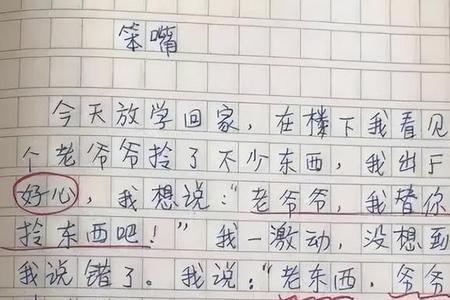 笨嘴
今天放学回家，在楼下我看见
个老爷爷拎了不少东西，我出于
好心，我想说：“老爷爷，我替你
拎东西吧！”我一激动，没想到
我说错了。我说：“老东西，爷爷